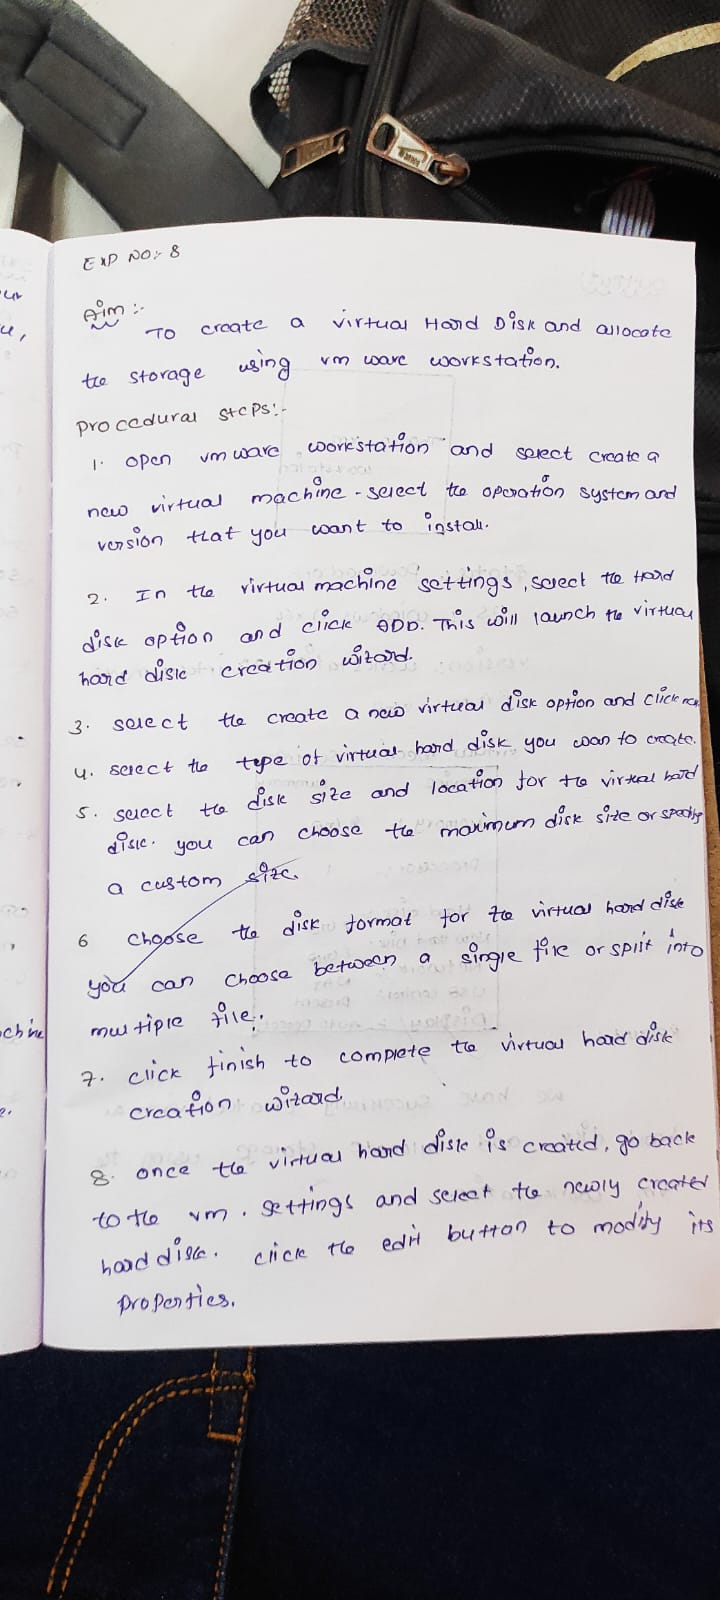 EXP NO:- 8
Aim :-
To create a virtual Hard Disk and allocate
the storage using vm ware workstation.
procedural steps:-
1. open vm ware workstation and select create a
new virtual machine - select the operation system and
version that you want to install.
2. In the virtual machine settings, select the Hard
disk option and click ADD. This will launch the virtual
hard disk creation wizard.
3. select the create a new virtual disk option and click
4. select the type of virtual hard disk you wan to create.
5. select the disk size and location for the virtual hard
disk. you can choose the maximum disk size or specify
a custom size.
6 choose the disk format for the virtual hard disk
you can choose between a single file or split into
multiple file.
7. click finish to complete the virtual hard disk
creation wizard.
8. once the virtual hard disk is created, go back
to the vm. settings and select the newly created
hard disk. click the edit button to modify its
properties.
chine